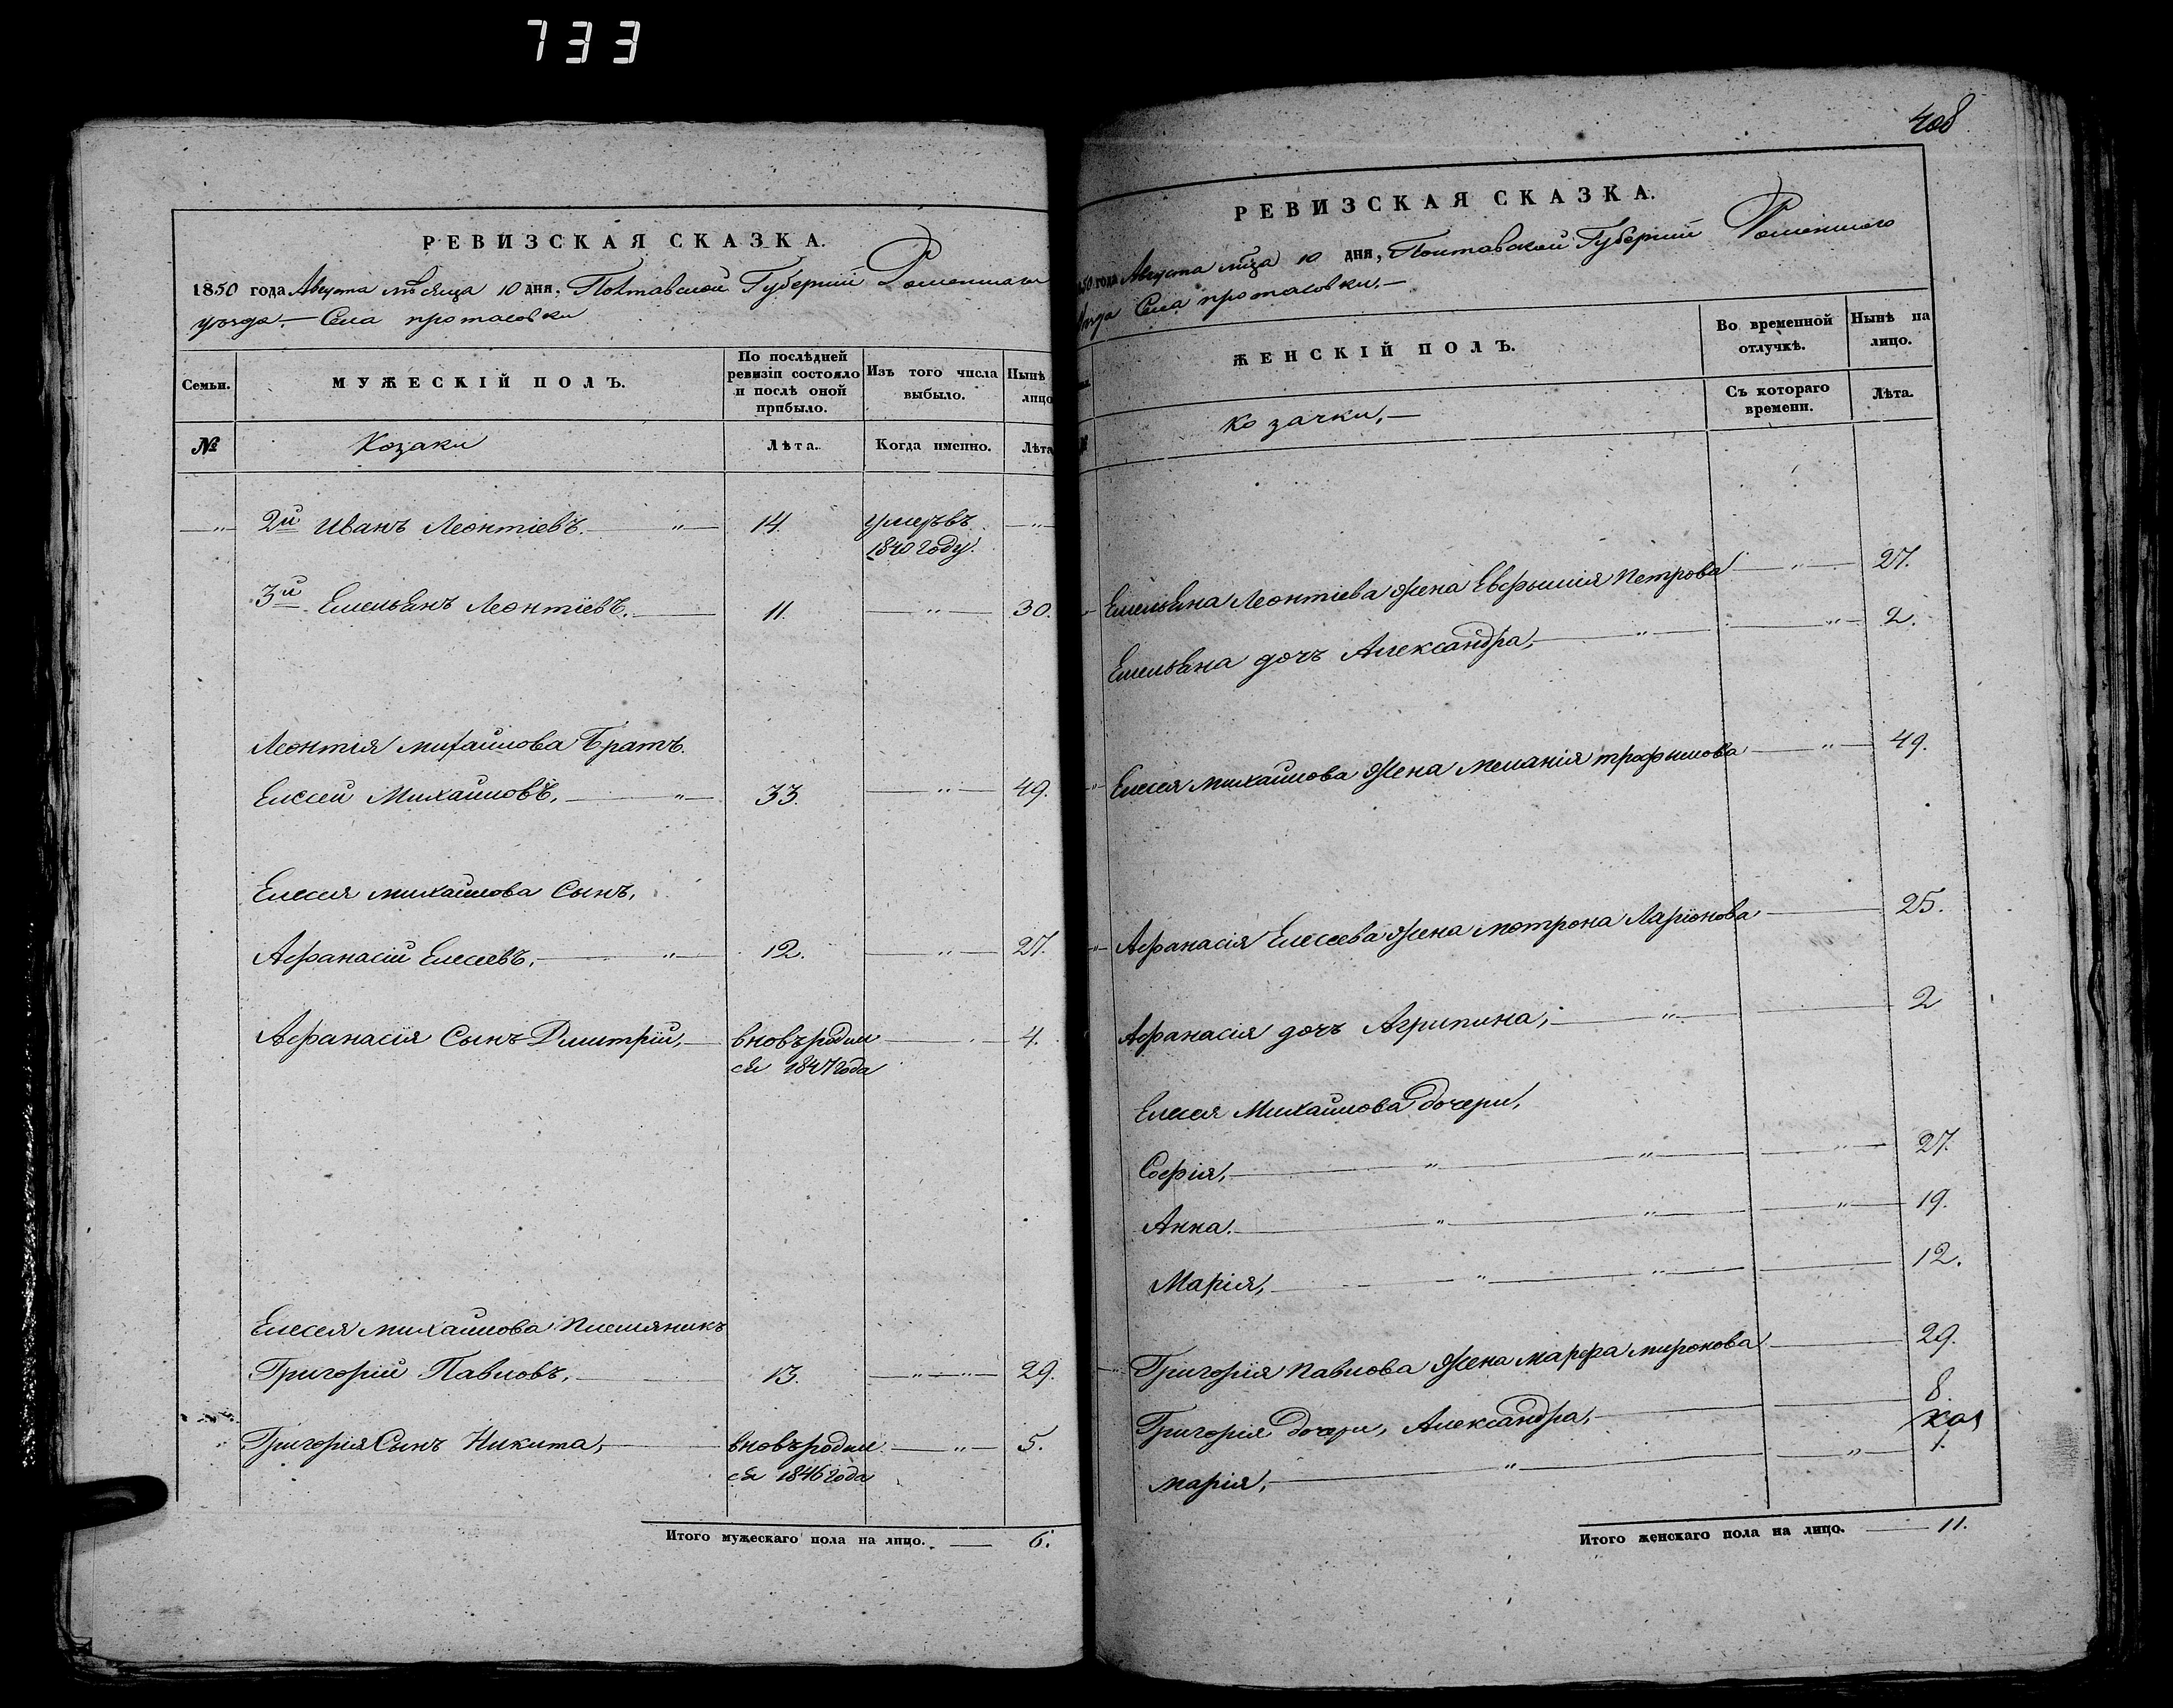 733
РЕВИЗСКАЯ СКАЗКА.
1850 года Августа мѣсяца 10 дня, Полтавской Губерніи Роменшаго
уѣзда.— Села протасовки
Семьи.
МУЖЕСКІЙ ПОЛЪ.
По послѣдней ревизіи состояло и послѣ оной прибыло.
Изъ того числа выбыло.
Нынѣ лицо
№
Козаки
Лѣта.
Когда именно.
Лѣта
— „ 2й Иванъ Леонтіевъ. — „ — 14. умеръ въ — „
1840 году.
3й Емельянъ Леонтіевъ. — 11. — „ — 30.
Леонтія михайлова Братъ.
Елисей Михайловъ, — „ — 33. — „ — 49.
Елисея михайлова Сынъ,
Афанасій Елисеевъ, — „ — 12. — „ — 27.
Афанасія Сынъ Дмитрій, — вновъ родил — 4.
ся 1847 года
Елисея михайлова племяникъ
Григорій Павловъ, — 13. — „ — „ — 29.
Григорія Сынъ Никита, — вновъ родил — „ — 5.
ся 1846 года
Итого мужескаго пола на лицо. — 6.
408
РЕВИЗСКАЯ СКАЗКА.
850 года Августа мца 10 дня, Полтавской Губерніи Роменшаго
Уѣзда Села протасовки.—
ЖЕНСКІЙ ПОЛЪ.
Во временной отлучкѣ.
Нынѣ на лицо.
козачки,—
Съ котораго времени.
Лѣта.
Емельяна Леонтіева жена Евфимія Петрова — „ — 27.
Емельяна дочъ Александра, — „ — „ — 2.
Елисея михайлова жена меланія трофимова — „ — 49.
Афанасія Елисеева жена мотрона Ларіонова — 25.
Афанасія дочъ Агрипина, — „ — 2
Елисея Михайлова дочери,
Софія, — „ — „ — „ — 27.
Анна. — „ — „ — „ — 19.
Марія, — „ — „ — 12.
Григорія павлова жена марфа миронова — 29.
Григорія дочери, Александра, — 8.
марія, — „ — „ — 1.
Итого женскаго пола на лицо. — 11.